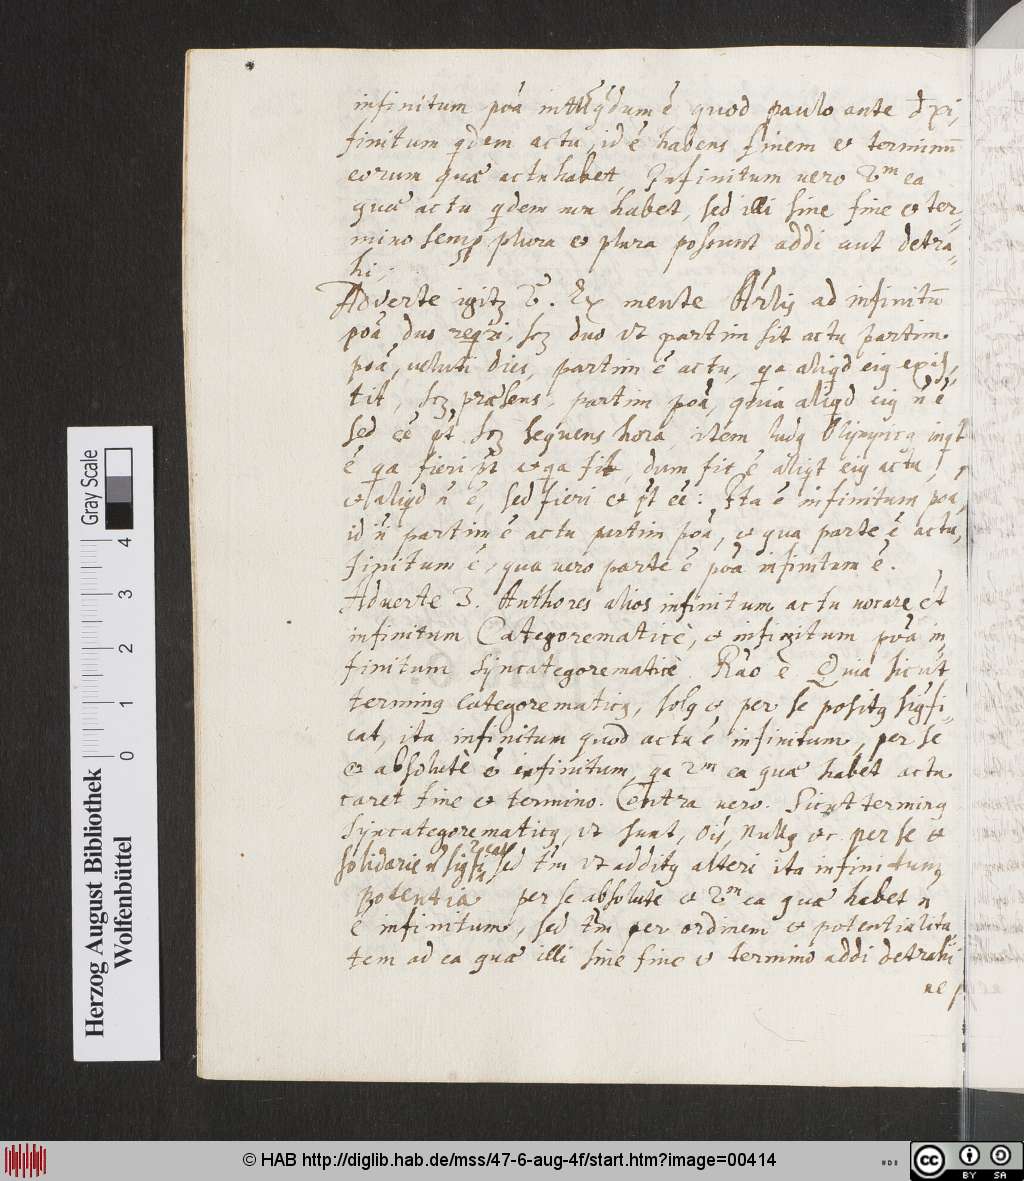 infinitum poã inttũ qdum ẽ quod paulo ante dxi,
finitum qdem actu, id ẽ habens finem et terminũ
eorum quæ actu habet, Infinitum vero 2m ea
quæ actu qdem non habet, sed illi sine fine et ter-
mino semp plura et plura possunt addi aut detra-
hi.
Adverte igitz 2. Ex mente Arlis ad infinitũ
poã duo reqri, scz duo ut partim sit actu partim
poã, veluti dies, partim ẽ actu, qa aliqd eig exis-
tit, scz præsens, partim poã, quia aliqd eig ñ ẽ
sed ẽe pt scz sequens hora, item ludg Olijmpicg inqt
ẽ qa fieri pt et qa fit, dum fit ẽ aliqt eig actu,
et aliqd ñ ẽ, sed fieri et pt ẽe: Ita ẽ infinitum poa,
id ñ partim ẽ actu partim poã, et qua parte ẽ actu,
finitum ẽ, qua vero parte ẽ poã infinitum ẽ.
Adverte 3. Authores alios infinitum actu vocare ẽt
infinitum Categorematicè, et infinitum poã in-
finitum Syncategorematicè. Rão ẽ Quia sicut
terming Categorematicg, solg et per se positg sigfi-
cat, ita infinitum quod actu ẽ infinitum, per se
et absolutè ẽ infinitum, qa 2m ea quæ habet actu
caret fine et termino. Contra vero. Sicut terming
Syncategorematicg, ut sunt, Ois, Nullg etc. per se et
solidarie ñ sigficat, sed tm ut additg alteri ita infinitum
potentia per se absolute et 2m ea quæ habet ñ
ẽ infinitum, sed tm per ordinem et potentialita-
tem ad ea quæ illi sine fine et termino addi detrahi
ue p
Herzog August Bibliothek
Wolfenbüttel
0 1 2 3 4
Gray Scale
© HAB http://diglib.hab.de/mss/47-6-aug-4f/start.htm?image=00414
cc BY SA